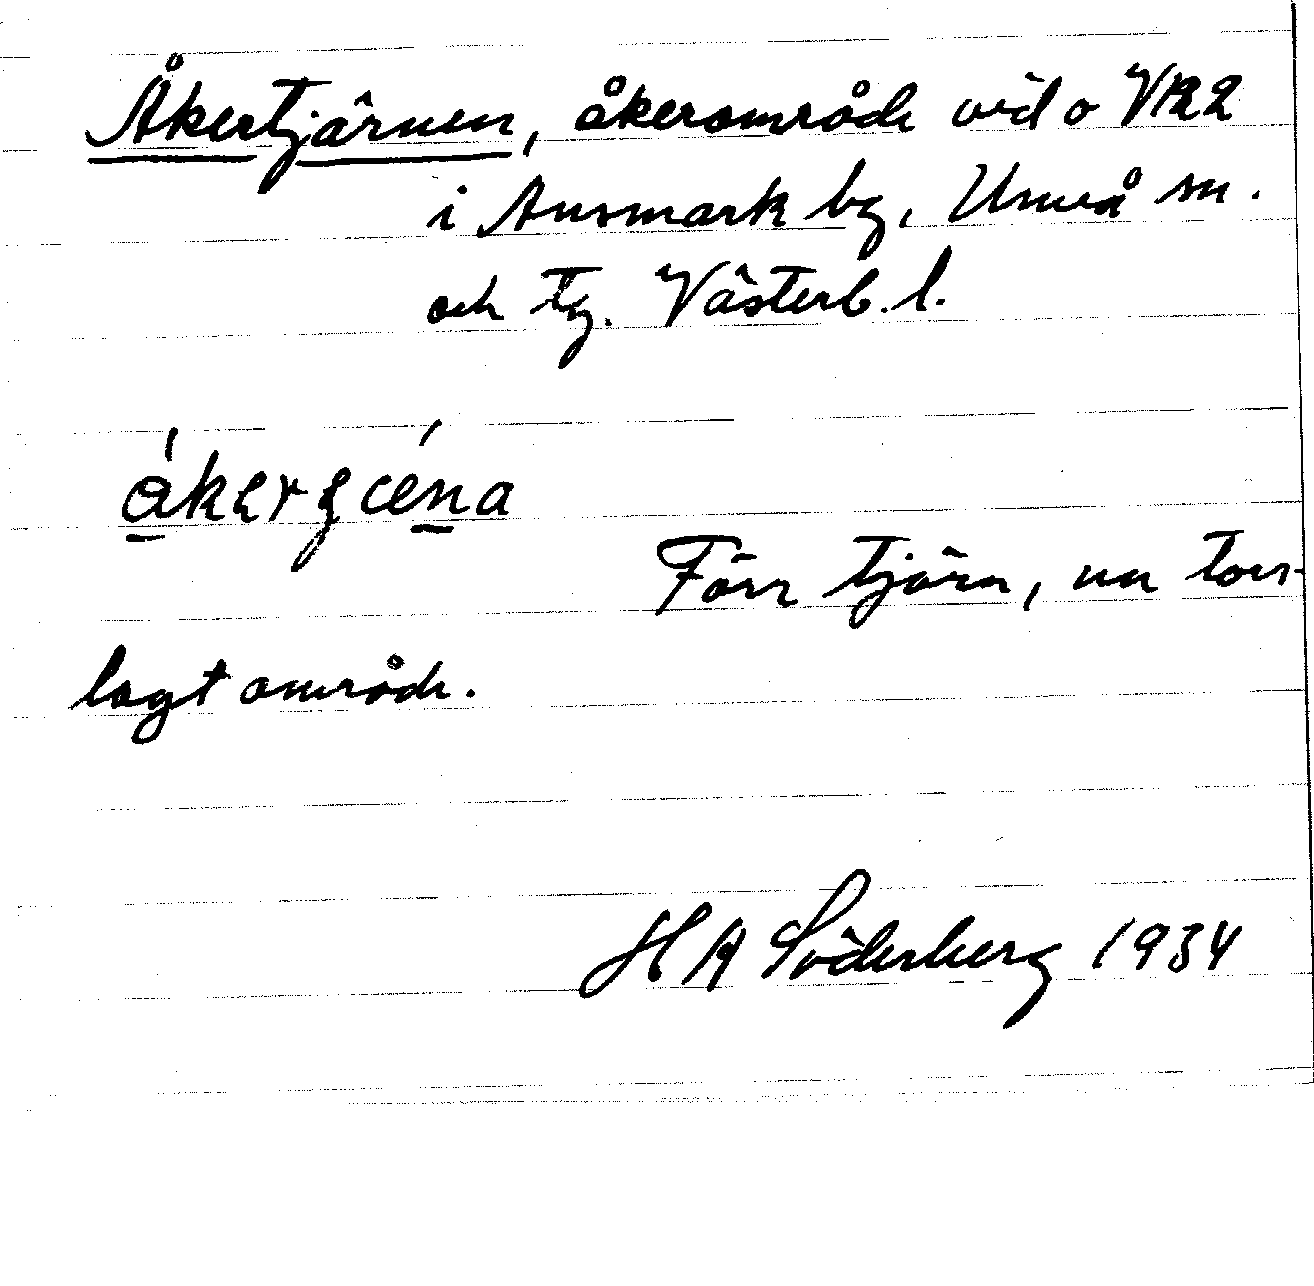 Åkertjärnen, åkerområde vid o VR2
i Ansmark by, Umeå sn.
och tg. Västerb. l.
Förr tjärn, nu torr-
lagt område.
H A Söderberg 1934